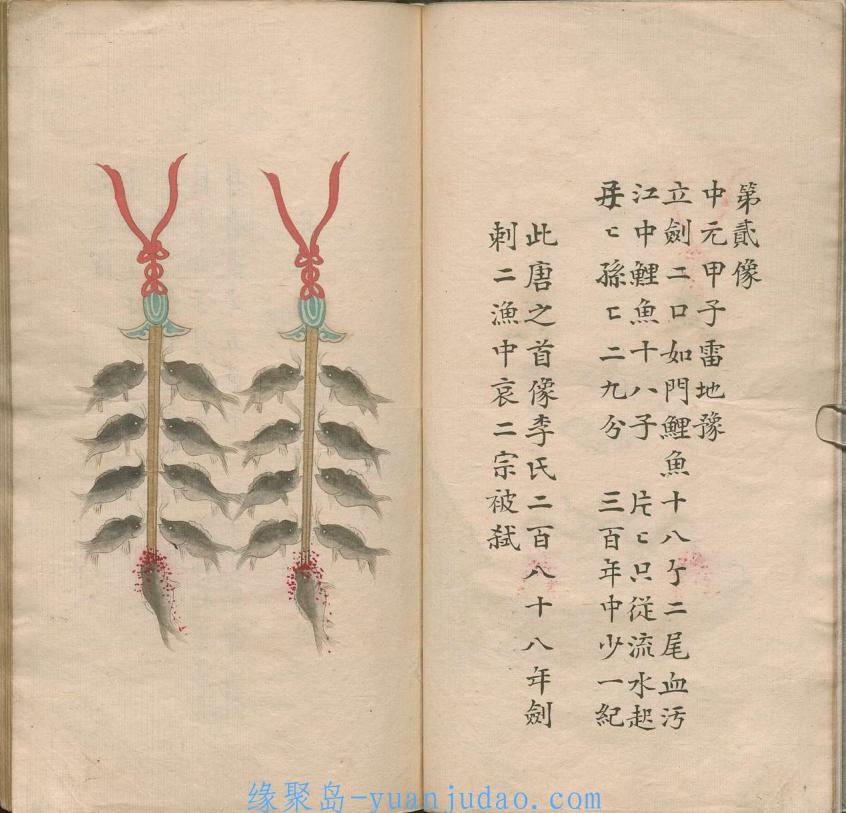 第貳像
中元甲子雷地豫
立劍二口如門鯉魚十八ケ二尾血污
江中鯉魚十八子 片匕只從流水起
匕孫匕二九分 三百年中少一紀
此唐之首像李氏二百八十八年劍
刺二漁中哀二宗被弑
缘聚岛-yuanjudao.com